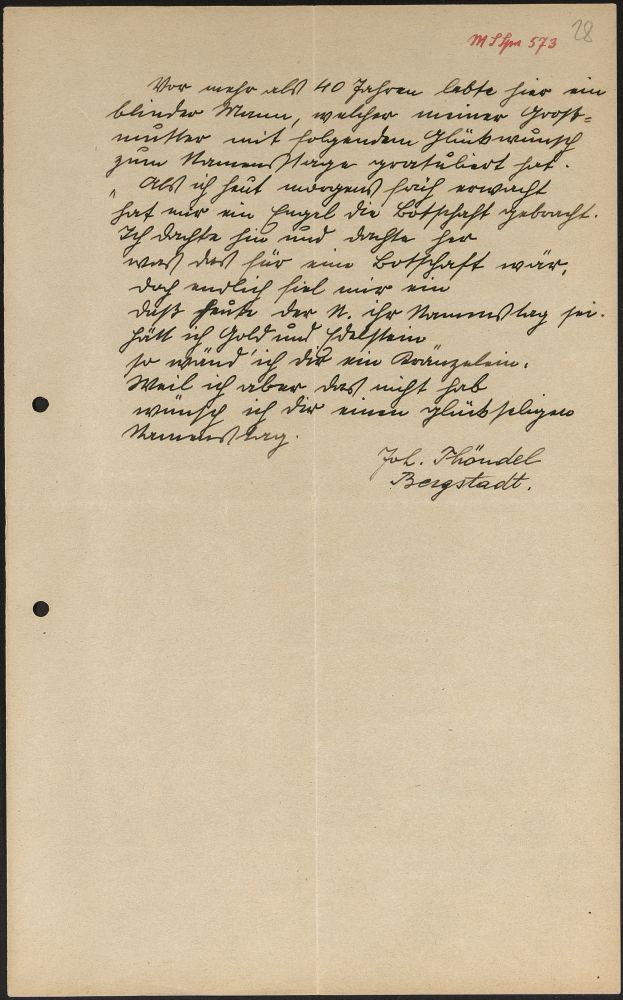 28
M S Spr 573
Vor mehr als 40 Jahren lebte hier ein
blinder Mann, welcher meiner Groß=
mutter mit folgendem Glückwunsch
zum Namenstage gratuliert hat.
„ Als ich heut morgens früh erwacht
hat mir ein Engel die Botschaft gebracht.
Ich dachte hin und dachte her
was das für eine Botschaft wär,
doch endlich fiel mir ein
daß heute der N. ihr Namenstag sei.
hätt ich Gold und Edelstein
so wänd' ich dir ein Kränzelein.
Weil ich aber das nicht hab
wünsch ich dir einen glückseligen
Namenstag.
Joh. Thöndel
Bergstadt.